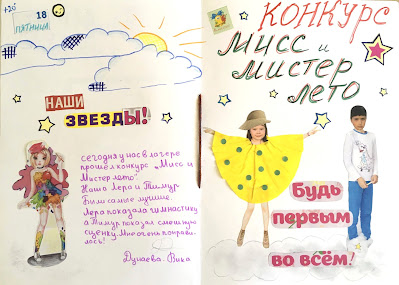 +26
18
ПЯТНИЦА
НАШИ
ЗВЕЗДЫ!
сегодня у нас в лагере
прошел конкурс „Мисс и
Мистер лето".
Наша Лера и Тимур
были самые лучшие.
Лера показала гимнастику,
а Тимур показал смешную
сценку. Мне очень понрави-
лось!
Дунаева Вика
КОНКУРС
МИСС и
МИСТЕР
ЛЕТО
Будь
первым
во всём!